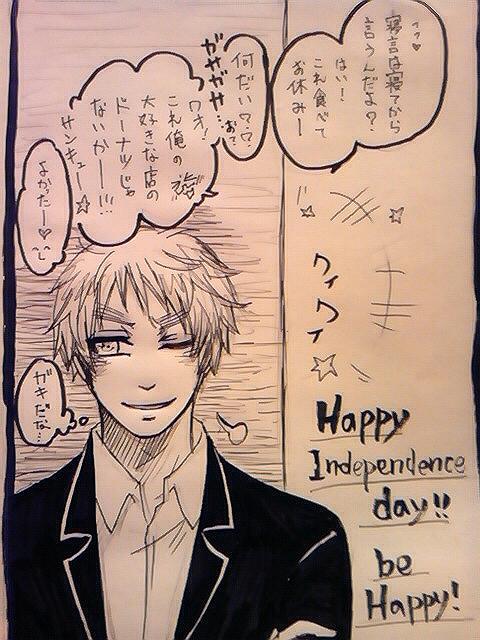 フフ♥
寝言は寝てから
言うんだよ?
はい!
これ食べて
お休みー
何だい??
ガサガサ…おぉ
ワオ!
これ俺の
大好きな店の
ドーナツじゃ
ないかー!!!
サンキュー☆
よかったー♥
ガキだな…
ワイワイ
Happy
Independence
day!!
be
Happy!